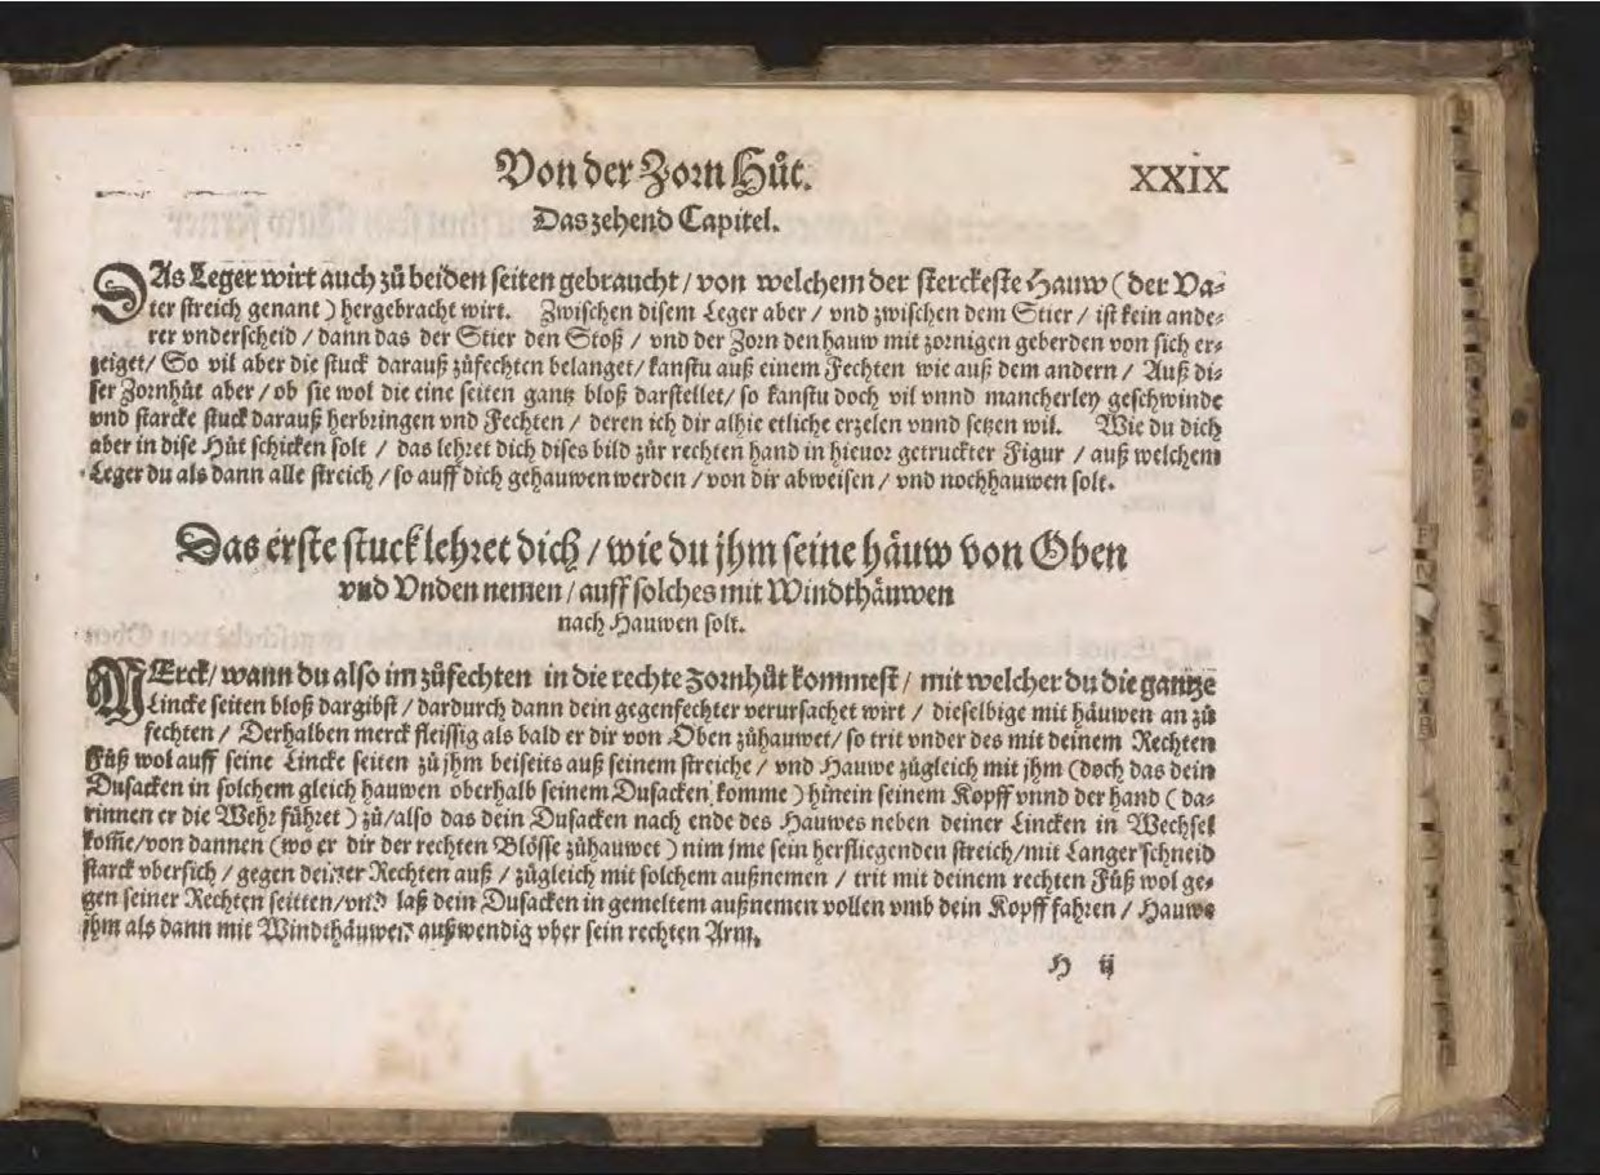 Von der Zorn Hůt.
XXIX
Das zehend Capitel.
DAs Leger wirt auch zů beiden seiten gebraucht / von welchem der sterckeste Hauw (der Va-
ter streich genant) hergebracht wirt. Zwischen disem Leger aber / vnd zwischen dem Stier / ist kein ande-
rer vnderscheid / dann das der Stier den Stoß / vnd der Zorn den hauw mit zornigen geberden von sich er-
zeiget / So vil aber die stuck darauß zůfechten belanget / kanstu auß einem Fechten wie auß dem andern / Auß di-
ser Zornhůt aber / ob sie wol die eine seiten gantz bloß darstellet / so kanstu doch vil vnnd mancherley geschwinde
vnd starcke stuck darauß herbringen vnd Fechten / deren ich dir alhie etliche erzelen vnnd setzen wil. Wie du dich
aber in dise Hůt schicken solt / das lehret dich dises bild zůr rechten hand in hieuor getruckter Figur / auß welchem
Leger du als dann alle streich / so auff dich gehauwen werden / von dir abweisen / vnd nochhauwen solt.
Das erste stuck lehret dich / wie du jhm seine häuw von Oben
vnd Vnden nemen / auff solches mit Windthäuwen
nach Hauwen solt.
MErck / wann du also im zůfechten in die rechte Zornhůt kommest / mit welcher du die gantze
Lincke seiten bloß dargibst / dardurch dann dein gegenfechter verursachet wirt / dieselbige mit häuwen an zů
fechten / Derhalben merck fleissig als bald er dir von Oben zůhauwet / so trit vnder des mit deinem Rechten
Fůß wol auff seine Lincke seiten zů jhm beiseits auß seinem streiche / vnd Hauwe zůgleich mit jhm (doch das dein
Dusacken in solchem gleich hauwen oberhalb seinem Dusacken komme) hinein seinem Kopff vnnd der hand (da-
rinnen er die Wehr führet) zů / also das dein Dusacken nach ende des Hauwes neben deiner Lincken in Wechsel
kom̃e / von dannen (wo er dir der rechten Blösse zůhauwet) nim jme sein herfliegenden streich / mit Langer schneid
starck vbersich / gegen deiner Rechten auß / zůgleich mit solchem außnemen / trit mit deinem rechten Fůß wol ge-
gen seiner Rechten seitten / vnd laß dein Dusacken in gemeltem außnemen vollen vmb dein Kopff fahren / Hauwe
jhm als dann mit Windthäuwen außwendig vber sein rechten Arm.
H ij